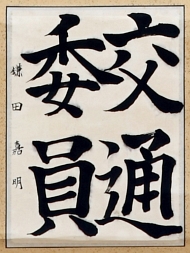 交通
委員
鎌田嘉明